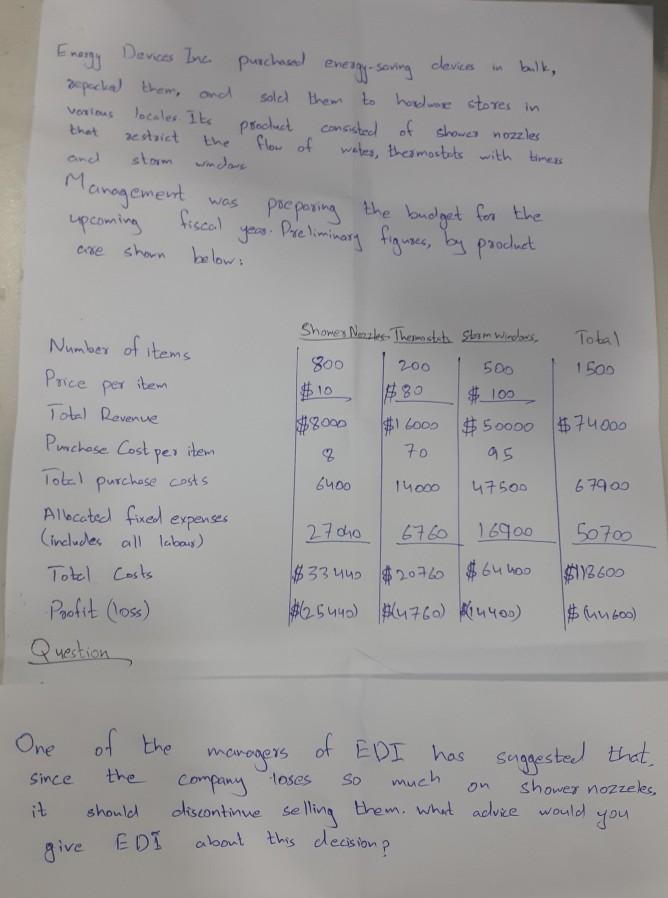 Energy Devices Inc. purchased energy-saving devices in bulk,
repacked them, and sold them to hardware stores in
various locales. Its product consisted of shower nozzles
that restrict the flow of water, thermostats with timers
and storm windows
Management was preparing the budget for the
upcoming fiscal year. Preliminary figures, by product
are shown below:
Shower Nozzles Thermostats Storm Windows Total
Number of items 800 200 500 1500
Price per item $10 $80 $100
Total Revenue $8000 $16000 $50000 $74000
Purchase Cost per item 8 70 95
Total purchase costs 6400 14000 47500 67900
Allocated fixed expenses
(includes all labour) 27040 6760 16900 50700
Total Costs $33440 $20760 $64400 $118600
Profit (loss) $(25440) $(4760) $(14400) $(44600)
Question
One of the managers of EDI has suggested that,
since the company loses so much on shower nozzeles,
it should discontinue selling them. What advice would you
give EDI about this decision?